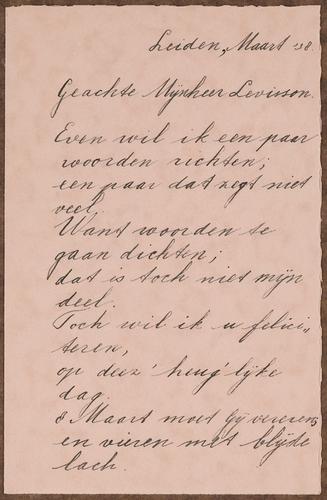 Leiden, Maart '38.
Geachte Mijnheer Levisson.
Even wil ik een paar
woorden richten;
een paar dat zegt niet
veel,
Want woorden te
gaan dichten;
dat is toch niet mijn
deel.
Toch wil ik u felici-
teren,
op deez' heug'lijke
dag.
8 Maart moet gij vereren
en vieren met blijde
lach.